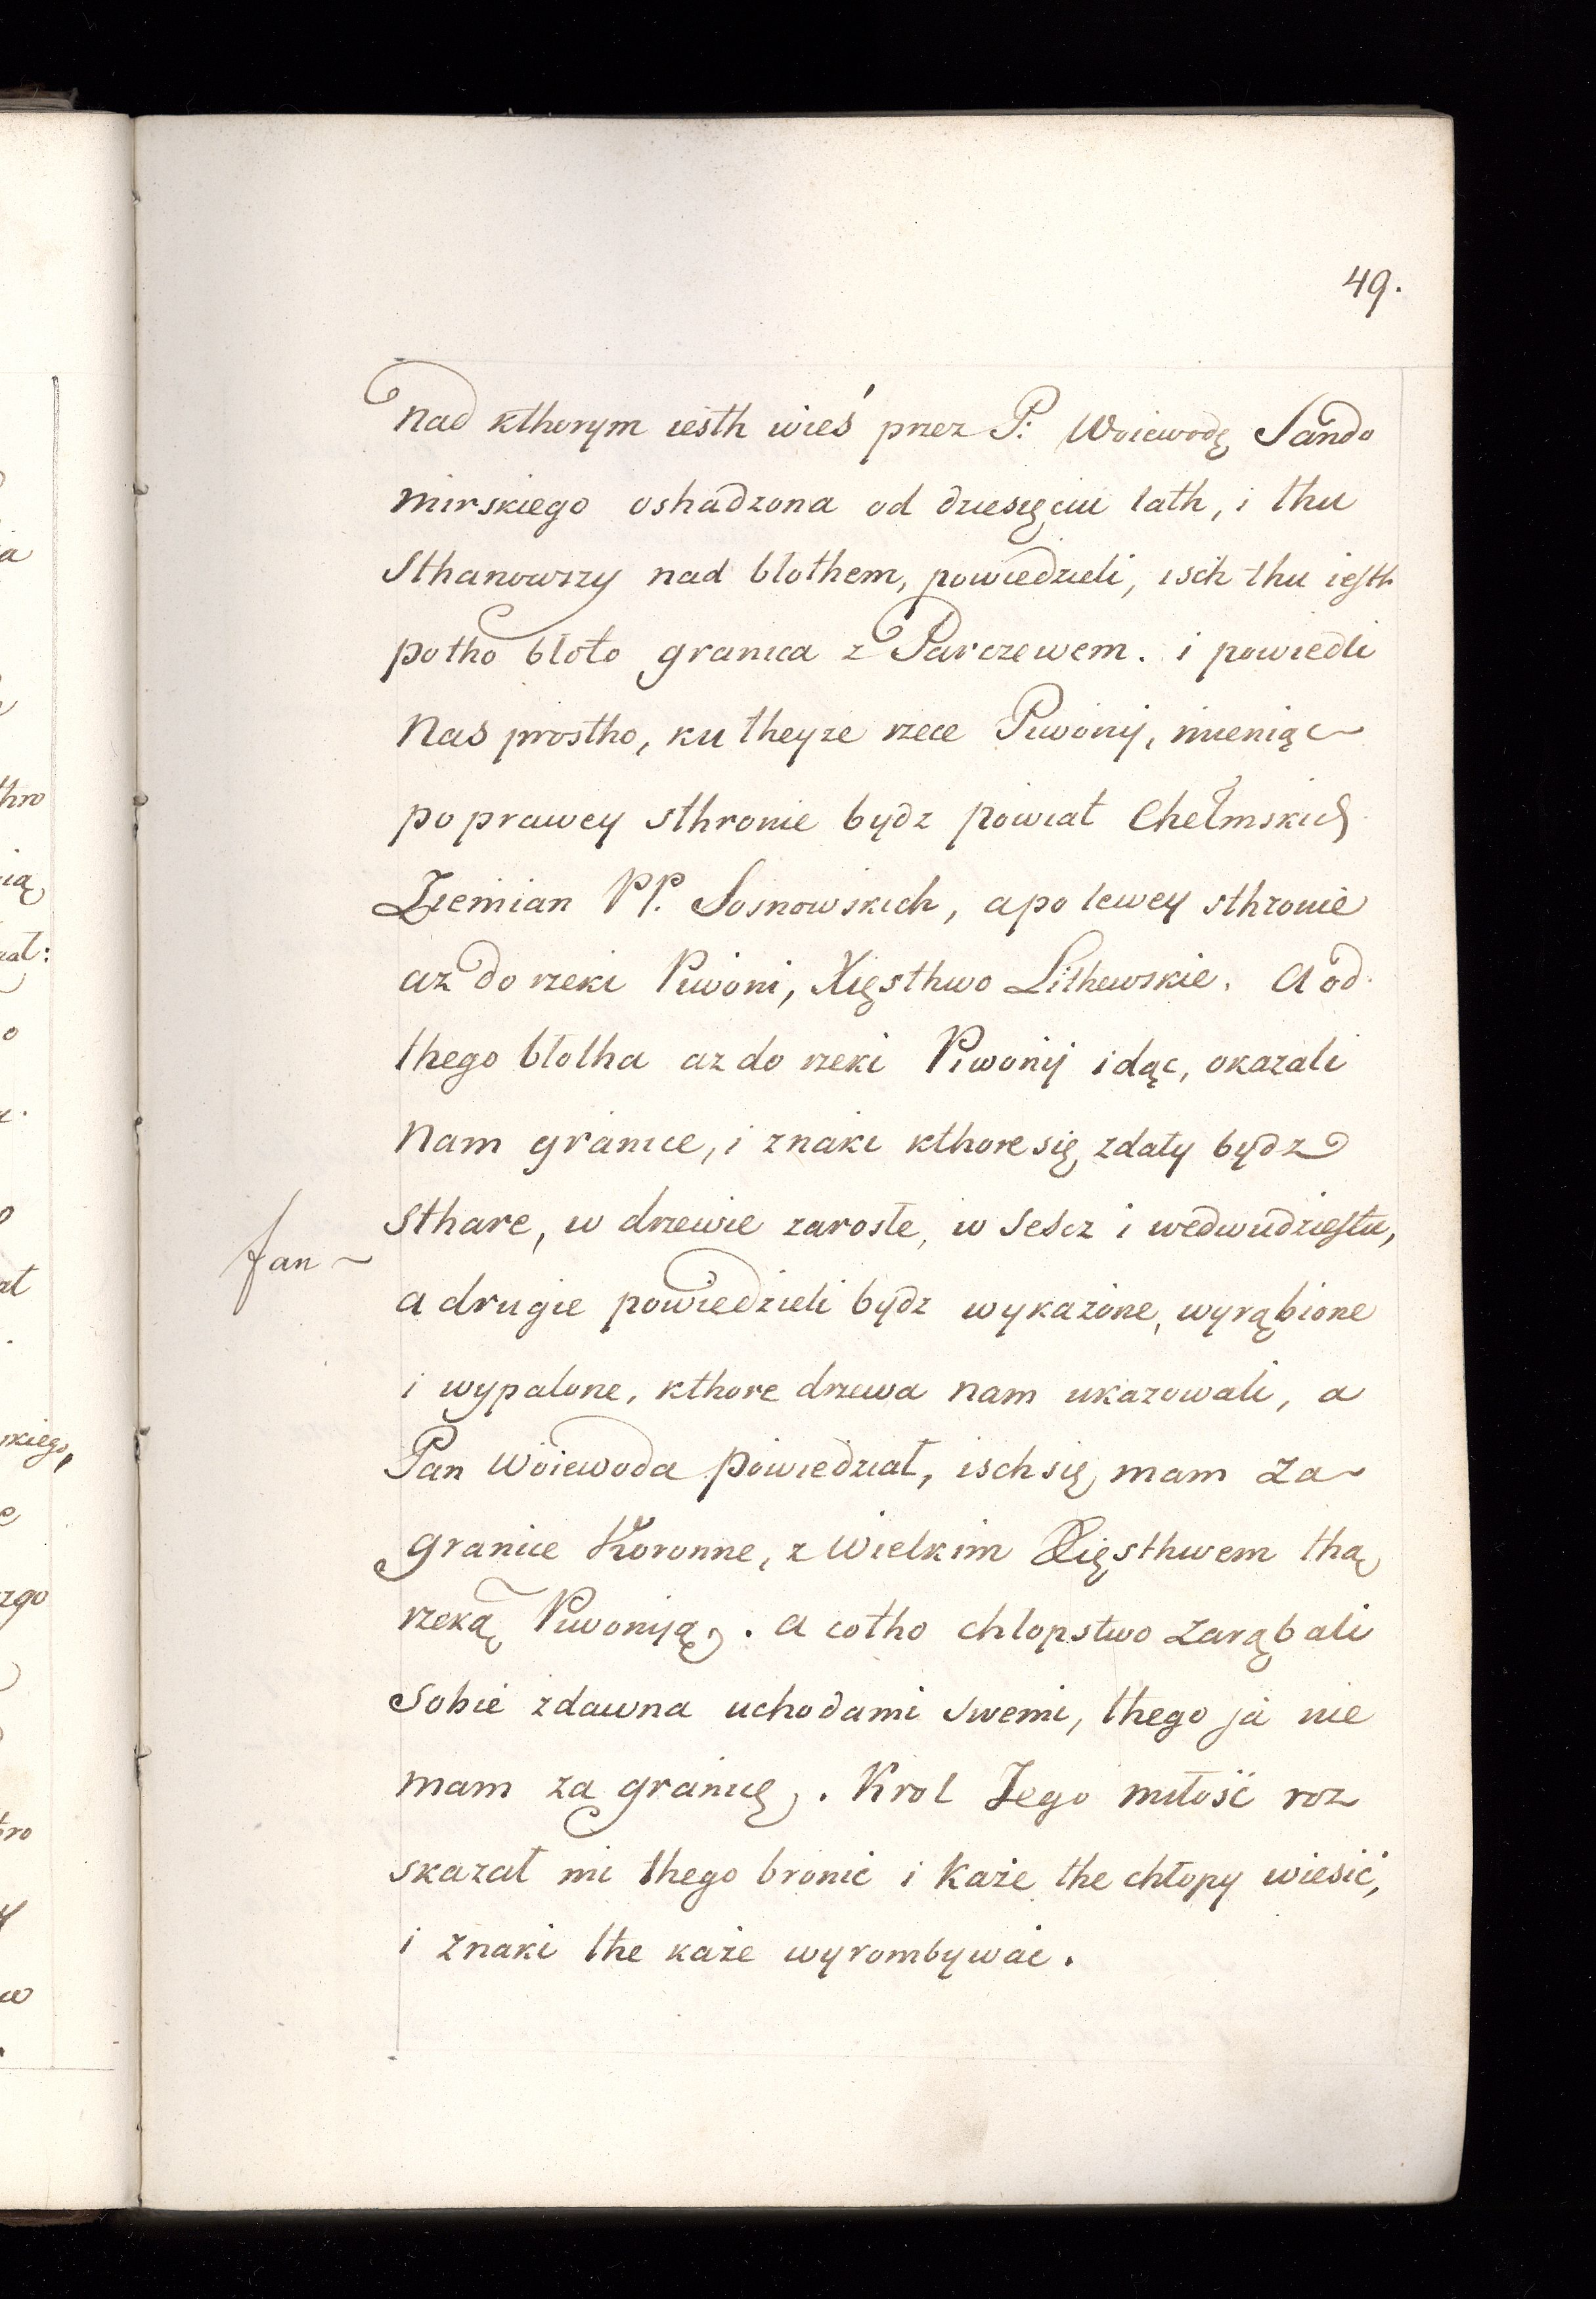 49.
Nad kthorym iesth wieś przez P: Woiewodę Sando
mirskiego oshadzona od dziesięciu lath, i thu
Sthanowszy nad błothem, powiedzieli, isch thu iesth
potho błoto granica z Parczewem. i powiedli
Nas prostho, ku theyze rzece Piwonij, mieniąc
po prawey sthronie bydz powiat Chełmskich
Ziemian PP. Sosnowskich, a po lewey sthronie
az do rzeki Piwoni, Xięsthwo Lithewskie. A od
thego błotha az do rzeki Piwonij idąc, okazali
Nam granice, i znaki kthore się zdały bydz
Sthare, w drzewie zarosłe, w sesc z i wedwudziestu,
fan
a drugie powiedzieli bydz wykażone, wyrąbione
i wypalone, kthore drzewa nam ukazowali, a
Pan Woiewoda powiedział, isch się mam za
granice Koronne, z Wielkim Xięsthwem thą
rzeką Piwoniją. A cotho chlopstwo zarąbali
Sobie zdawna uchodami swemi, thego ja nie
mam za granicę. Krol Jego miłość roz
skazał mi thego bronić i każe the chłopy wiesić,
i znaki the każe wyrombywać.